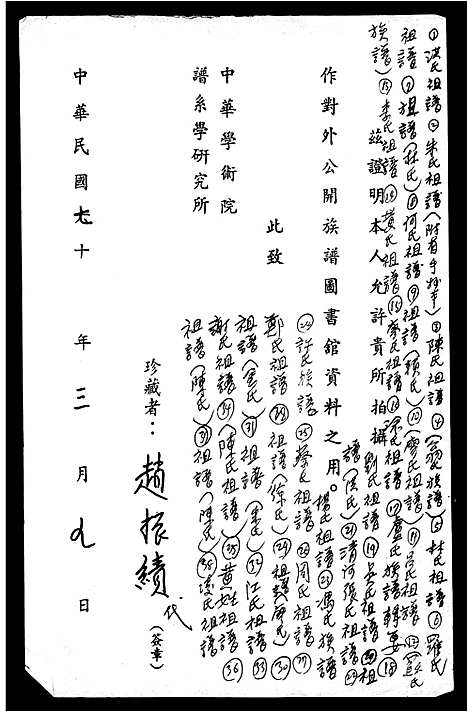 ①洪氏祖譜②朱氏祖譜(附有手抄本)③陳氏祖譜④(翁)族譜⑤杜氏祖譜⑥羅氏
祖譜⑦祖譜(杜氏)⑧何氏祖譜⑨祖譜(賴氏)⑩(廖氏祖譜)⑪呂氏祖譜⑫(蘇氏
族譜)⑬李氏祖譜 黃氏祖譜⑮廖氏祖譜⑯涂氏祖譜⑰盧氏族譜輯要⑱
茲證明本人允許貴所拍攝
劉氏祖譜⑲吳氏祖譜⑳祖
譜(洪氏)㉑清河張氏祖譜㉒
作對外公開族譜圖書館資料之用。
楊氏祖譜㉓馮氏族譜
㉔許氏族譜㉕蔡氏祖譜㉖周氏祖譜㉗
此致
鄭氏祖譜㉘祖譜(徐氏)㉙祖譜 ㉚
中華學術院
祖譜(李氏)㉛祖譜 ㉜江氏祖譜㉝
譜系學研究所
謝氏祖譜㉞(陳氏祖譜)㉟黃姓祖譜㊱
祖譜(陳氏) 祖譜(陳氏) 凌氏祖譜
珍藏者:趙振績代(簽章)
中華民國七十年三月九日